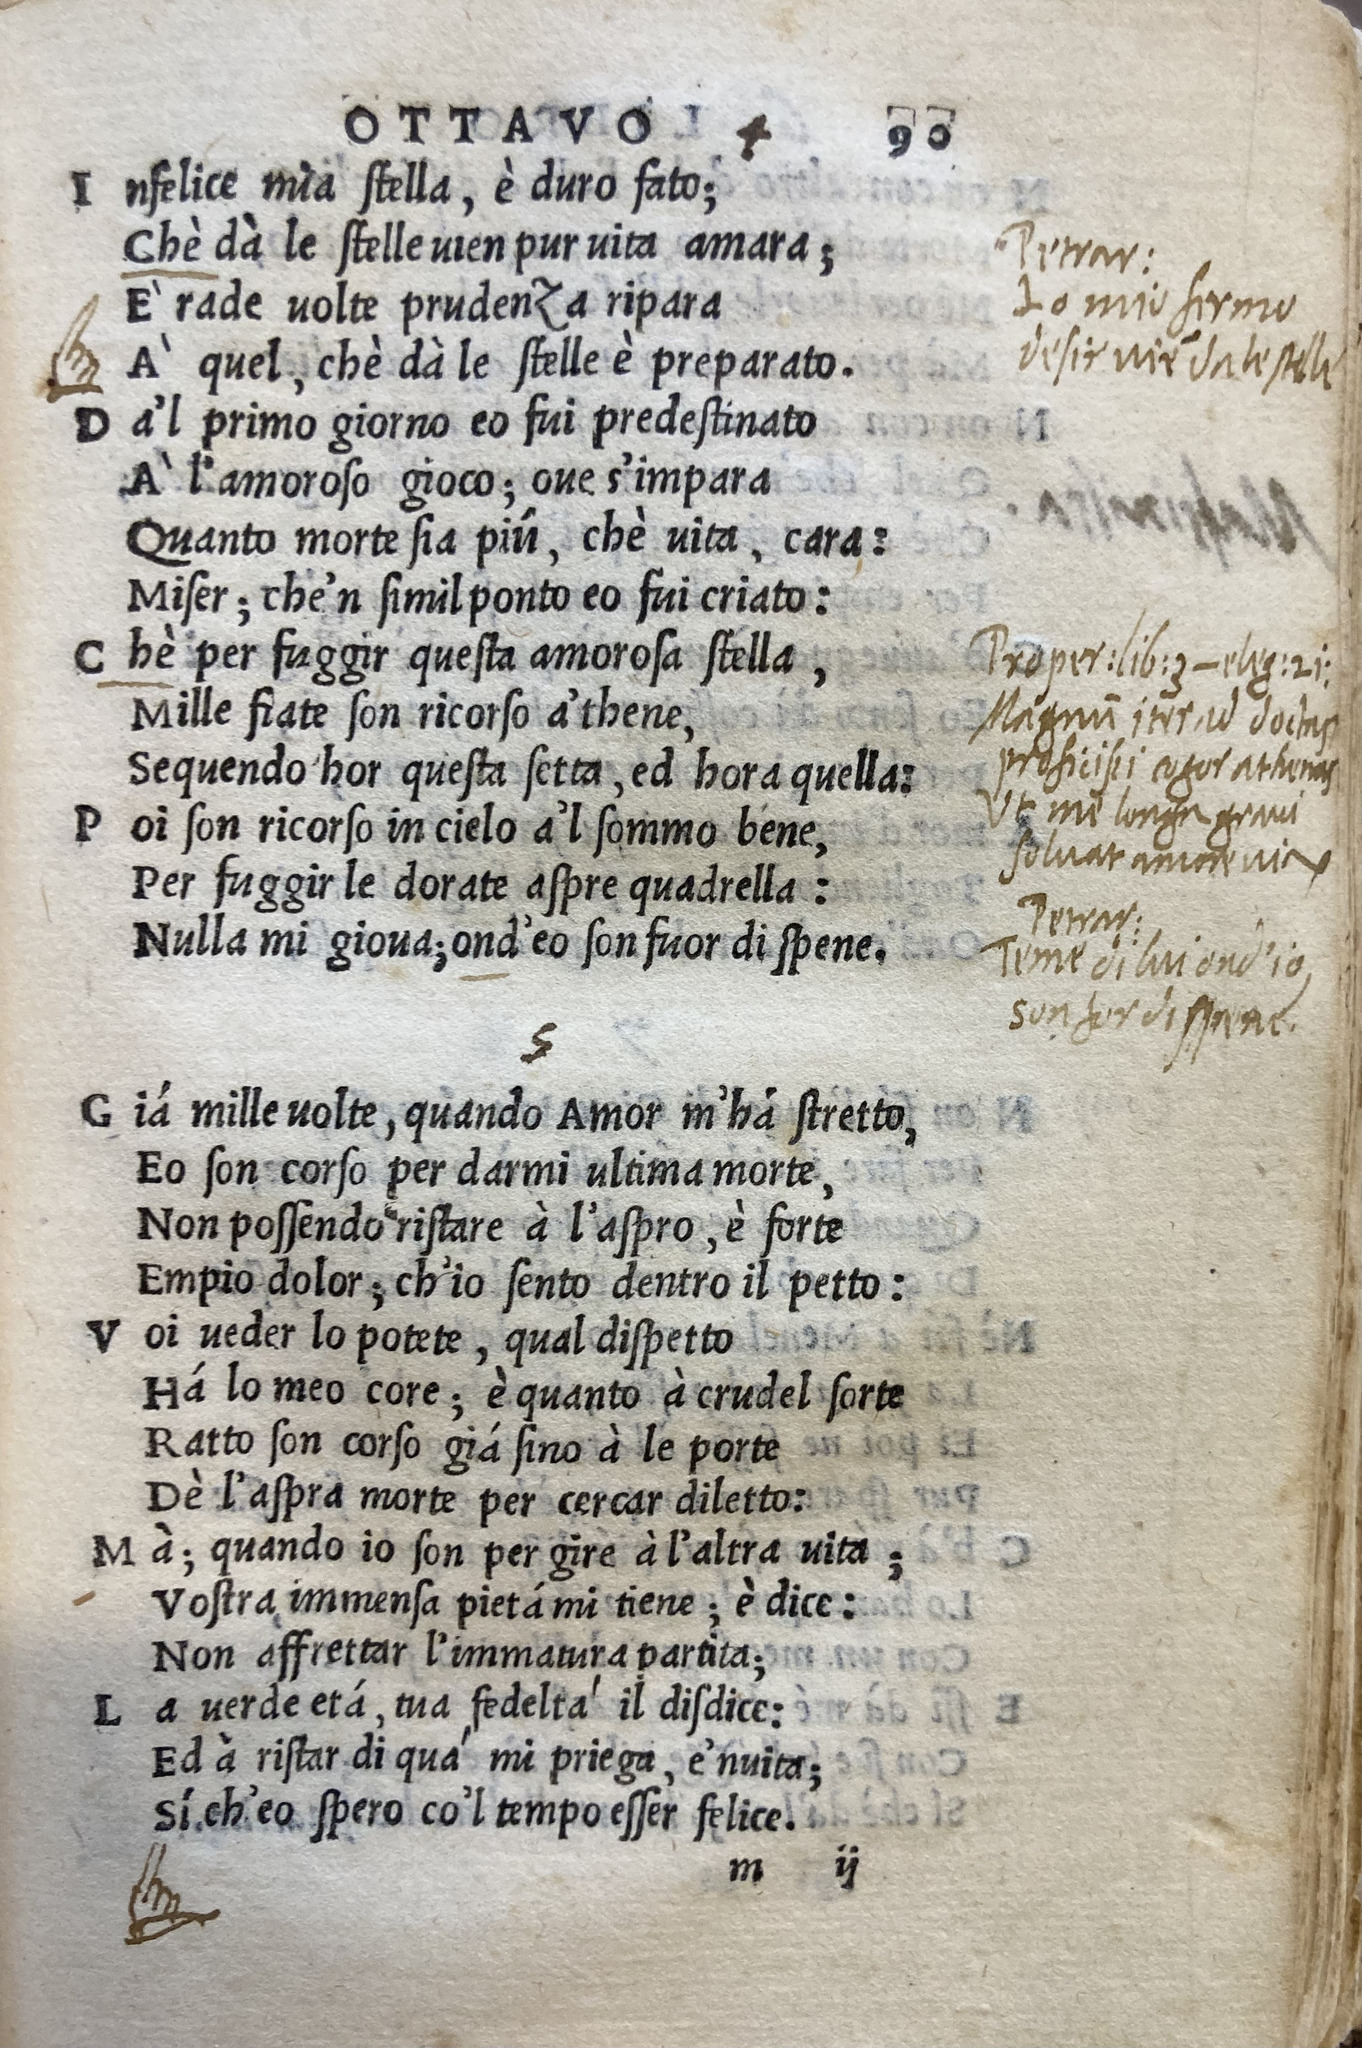 OTTAVO 4 90
Infelice mia stella, è duro fato;
Chè dà le stelle uien pur uita amara;
E' rade uolte prudenza ripara
A' quel, chè dà le stelle è preparato.
Petrar:
Lo mio fermo
desir vie͂ da le stelle
Da'l primo giorno eo fui predestinato
A' l'amoroso gioco; oue s'impara
Quanto morte sia piú, chè uita, cara:
Miser; che'n simil ponto eo fui criato:
Chè per fuggir questa amorosa stella,
Mille fiate son ricorso a'thene,
Sequendo hor questa setta, ed hora quella:
Poi son ricorso in cielo a'l sommo bene,
Per fuggir le dorate aspre quadrella:
Nulla mi gioua; ond'eo son fuor di spene.
Proper: lib: 3 – eleg: 21:
Magnũ iter ad doctas
proficisci cogor athenas
Ut me longa graui
soluat amore via
Petrar:
Teme di lui ond'io
son for di spene.
5
Giá mille uolte, quando Amor m'há stretto,
Eo son corso per darmi ultima morte,
Non possendo ristare à l'aspro, è forte
Empio dolor; ch'io sento dentro il petto:
Voi ueder lo potete, qual dispetto
Há lo meo core; è quanto à crudel sorte
Ratto son corso giá sino à le porte
Dè l'aspra morte per cercar diletto:
Mà; quando io son per gire à l'altra uita;
Vostra immensa pietá mi tiene; è dice:
Non affrettar l'immatura partita;
La uerde etá, tua fedelta' il disdice:
Ed à ristar di qua' mi priega, e'nuita;
Sí ch'eo spero co'l tempo esser felice.
m ij